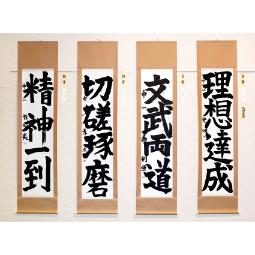 理想達成
文武両道
切磋琢磨
精神一到